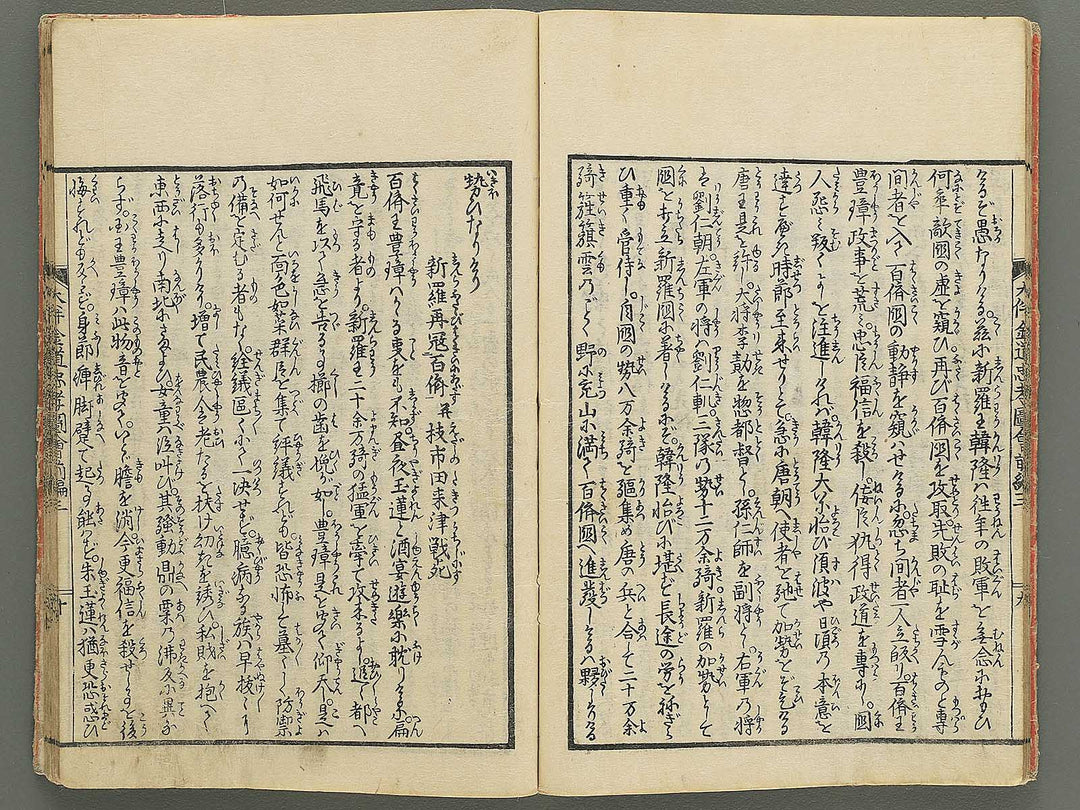 けるぞ愚なりける。茲に新羅王韓隆ハ往年の敗軍を無念におもひ
何卒敵國の虚を窺ひ。再び百濟國を攻取。先敗の恥を雪んものと専
間者を入て百濟國の動静を窺ハせけるに。忽ち間者一人立皈り。百濟王
豊璋政事を荒し。忠臣福信を殺し。佞臣仇得政道を専にし。國
人怨ミ叛くよしを注進しけれバ。韓隆大に怡び。須波や日頃乃本意を
達すべき時節至来せりとて。急に唐朝へ使者を馳て加勢をぞ乞ける
唐王是を許し。大将李勣を惣都督とし。孫仁師を副将とし。右軍乃将
は劉仁朝。左軍の将ハ劉仁軌。三隊乃勢十二万余騎。新羅の加勢として
國を打立新羅國に着しけるにぞ。韓隆怡びに堪ず長途の労を祢ぎら
ひ重く管待し。自國の勢八万余騎を驅集め唐の兵と合して二十万余
騎。旌籏雲乃ごとく野に充山に満て百濟國へ進發しけるハ夥しかりける
勢ひなりけり
新羅再冦百濟并技市田来津戦死
百濟王豊璋ハかゝる叓をも不知昼夜玉蓮と酒宴遊樂に耽りけるに。扁
竟を守る者より。新羅王二十余万騎の猛軍を率て攻来るよし。追て都へ
飛馬を以て急を告るこそ櫛の歯を挽が如し。豊璋是をきゝて仰天し。是ハ
如何せんと面色如菜群臣を集て評議をすれども皆恐怖し墓〻しく防禦
乃備を定むる者もなく。経議區〻にして一决せず。臆病なる族ハ早技〻し
落行も多かりけり。増て民農ハ老たるを扶け幼きを誘ひ。私財を抱へて
東西に走り南北にさまよひ。女童ハ泣叫び。其強動鼎の粟乃沸久に異な
らず。国王豊璋ハ此物音をきゝて。いとゞ膽を消。今更福信を殺せしことを後
悔すれども及バず。身節痺脚躄て起こと能ハず。朱玉蓮ハ猶更恐惑ひ